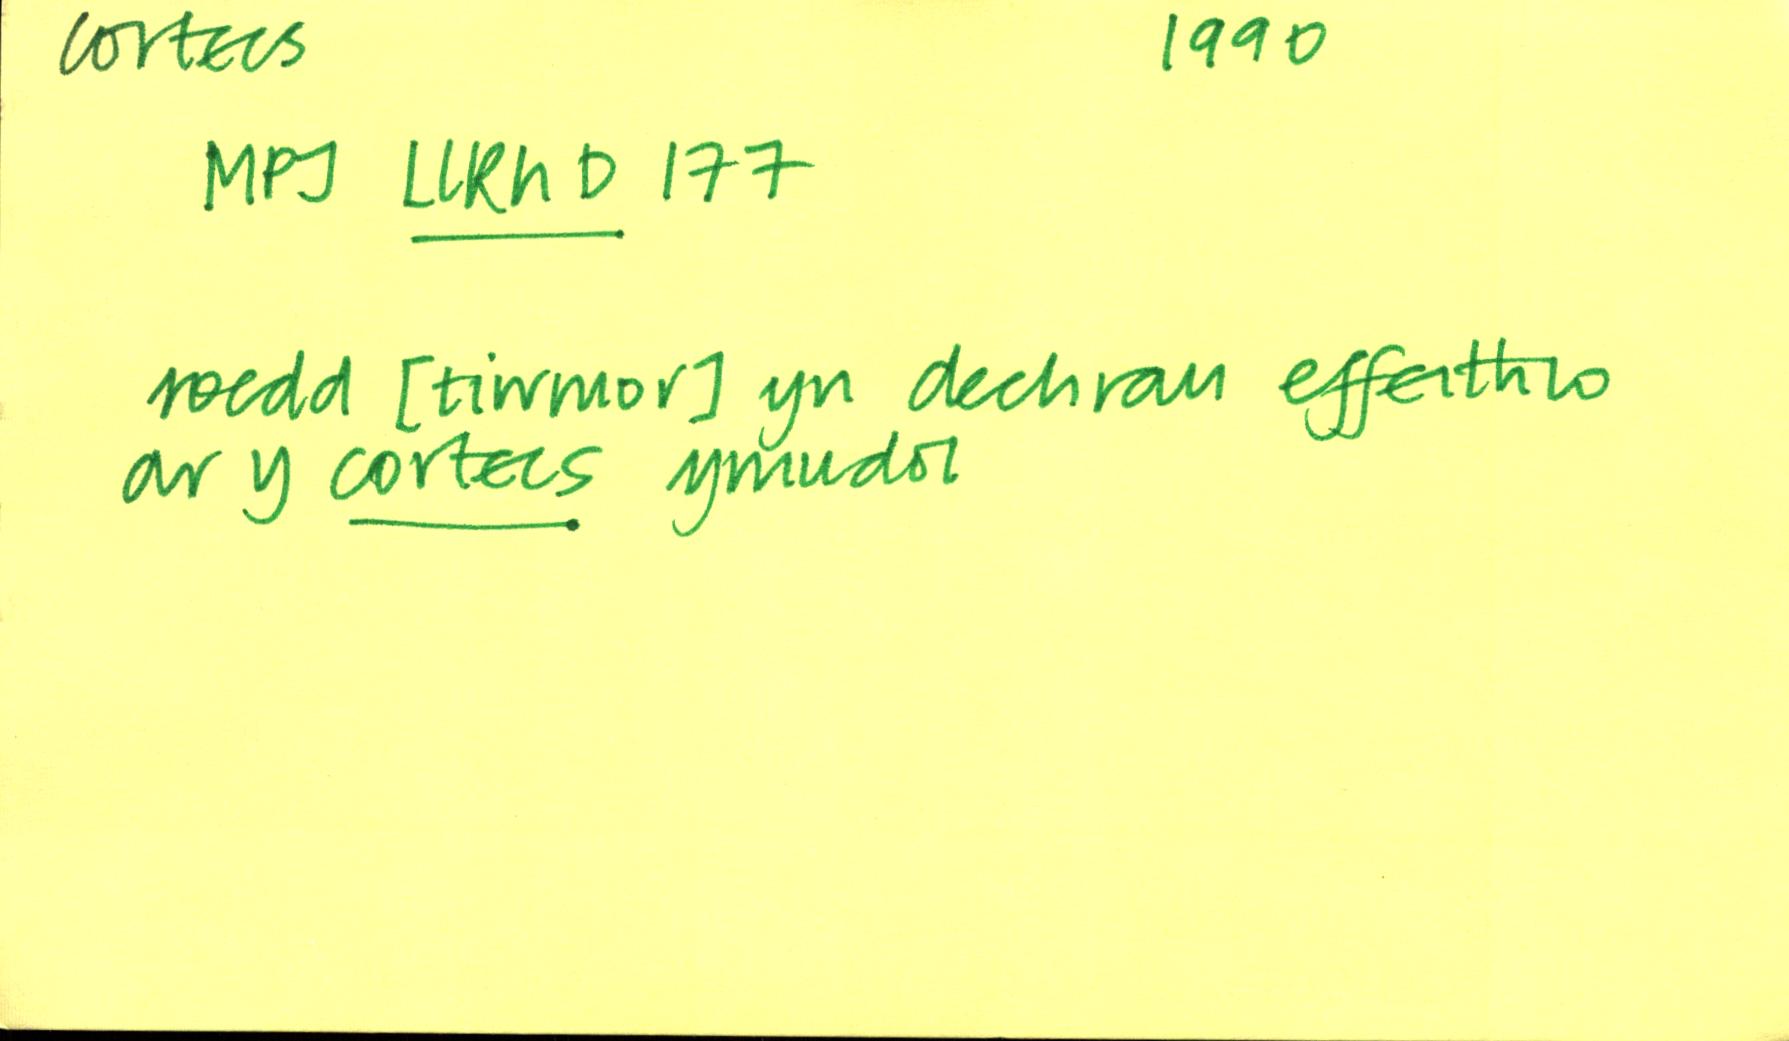 cortecs 1990
MPJ LlRh D 177
roedd [tiwmor] yn dechrau effeithio
ar y cortecs ymudol